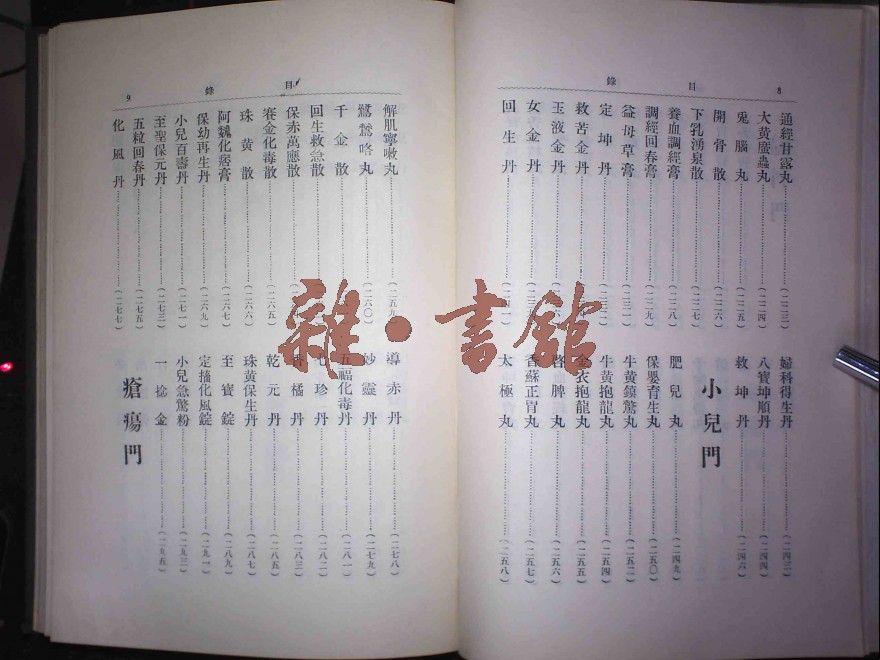 目錄 8
通經甘露丸(二二三)
大黃䗪蟲丸(二二四)
兎腦丸(二二五)
開骨散(二二六)
下乳湧泉散(二二七)
養血調經膏(二二八)
調經回春膏(二二九)
益母草膏(二三一)
定坤丹(二三二)
救苦金丹
玉液金丹
女金丹
回生丹(二四一)
婦科得生丹(二四三)
八寶坤順丹(二四四)
救坤丹(二四六)
小兒門
肥兒丸(二四九)
保嬰育生丸(二五〇)
牛黃鎮驚丸(二五二)
牛黃抱龍丸(二五四)
金衣抱龍丸(二五五)
啓脾丸(二五六)
香蘇正胃丸(二五七)
太極丸(二五八)
目錄 9
解肌寧嗽丸(二五九)
鷺鷥咯丸(二六〇)
千金散
回生救急散
保赤萬應散
賽金化毒散(二六五)
珠黃散(二六六)
阿魏化痞膏(二六七)
保幼再生丹(二六九)
小兒百壽丹(二七一)
至聖保元丹(二七三)
五粒回春丹(二七五)
化風丹(二七七)
導赤丹(二七八)
妙靈丹(二七九)
五福化毒丹(二八一)
七珍丹(二八二)
香橘丹(二八三)
乾元丹(二八五)
珠黃保生丹(二八七)
至寶錠(二八九)
定搐化風錠(二九一)
小兒急驚粉(二九三)
一捻金(二九五)
瘡瘍門
雜·書館